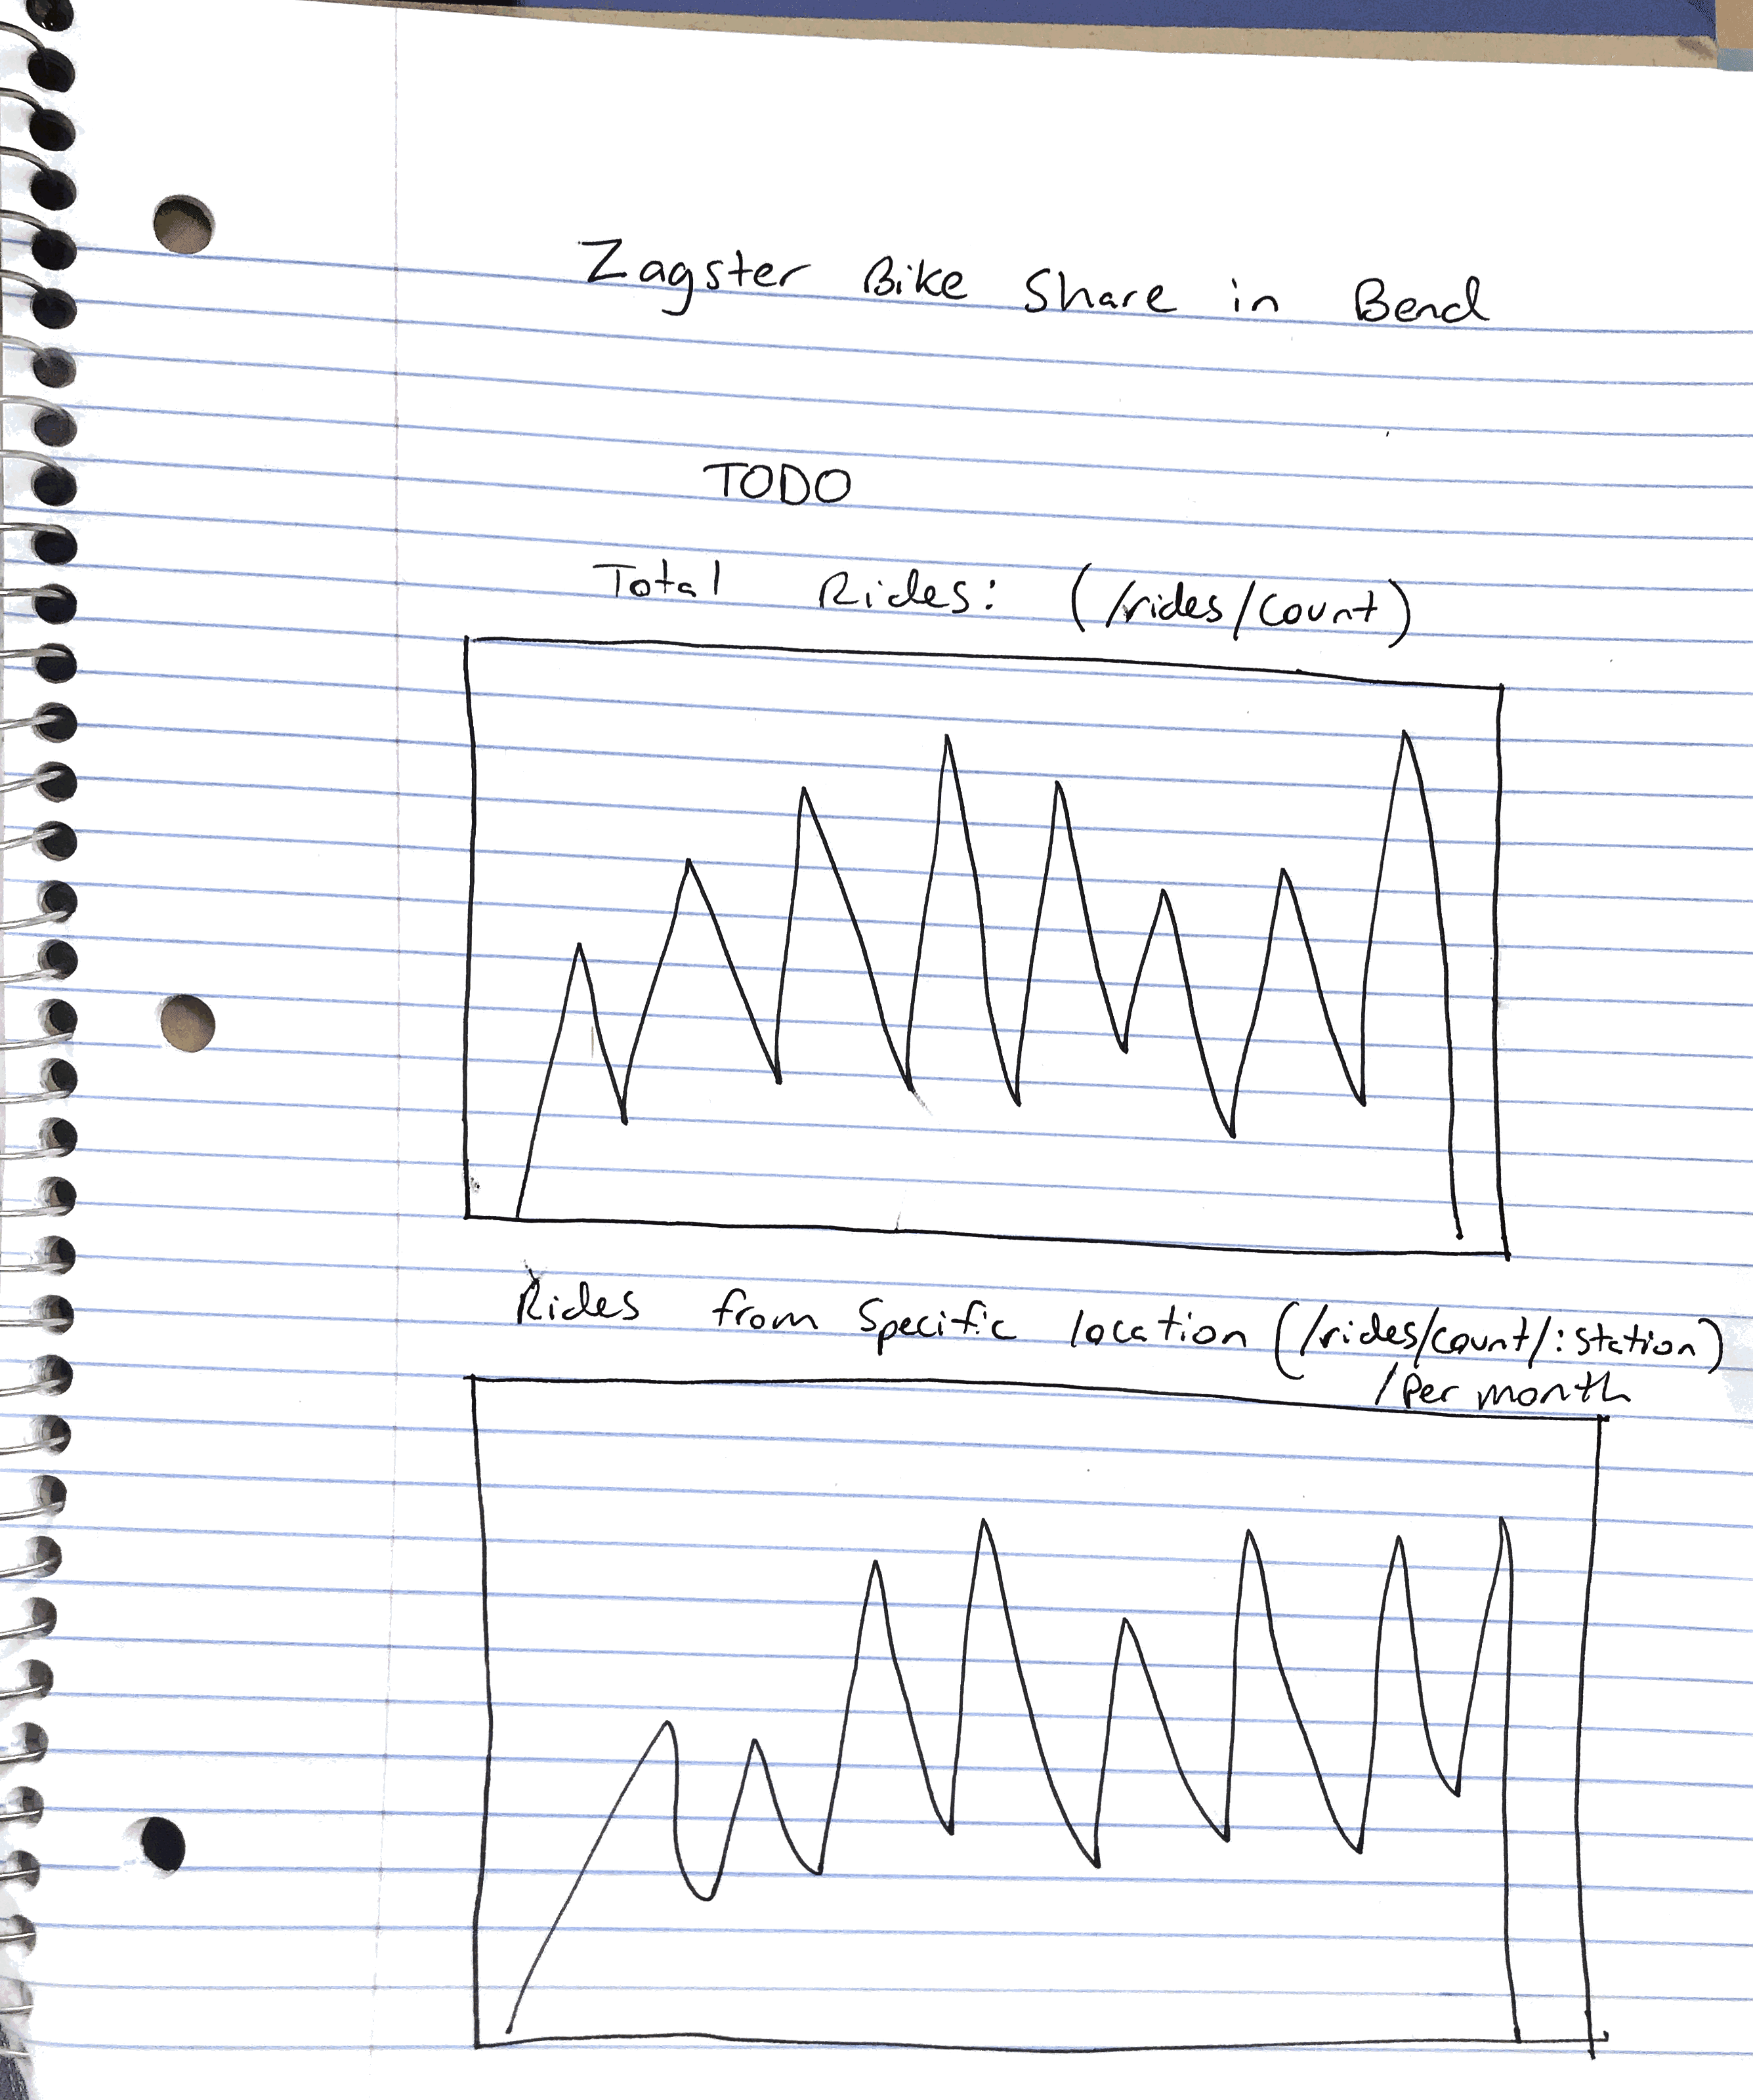 Zagster Bike Share in Bend
TODO
Total Rides: (/rides/count)
Rides from Specific location (/rides/count/:station)
/per month